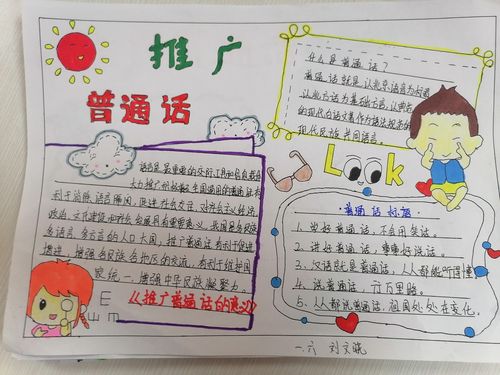 推广
普通话
什么是普通话？
普通话就是以北京语音为标准
以北方话为基础方言，以典范
的现代白话文著作为语法规范的
现代民族共同语言。
Look
语言是最重要的交际工具和信息载体
大力推广和积极普及全国通用的普通话有
利于消除语言隔阂，促进社会交往，对社会主义经济
政治、文化建设和社会发展具有重要意义。我国是多民族
多语言、多方言的人口大国，推广普通话有利于促进
增进各民族各地区的交流，有利于维护国
家统一，增强中华民族凝聚力。
《推广普通话的意义》
E
山 m
普通话标语
1、学好普通话，不自用笑话。
2、讲好普通话，事事好说话。
3、汉语就是普通话，人人都能听得懂
4、说普通话，行万里路。
5、人人都说普通话，祖国处处在变化。
一.六 刘文晓